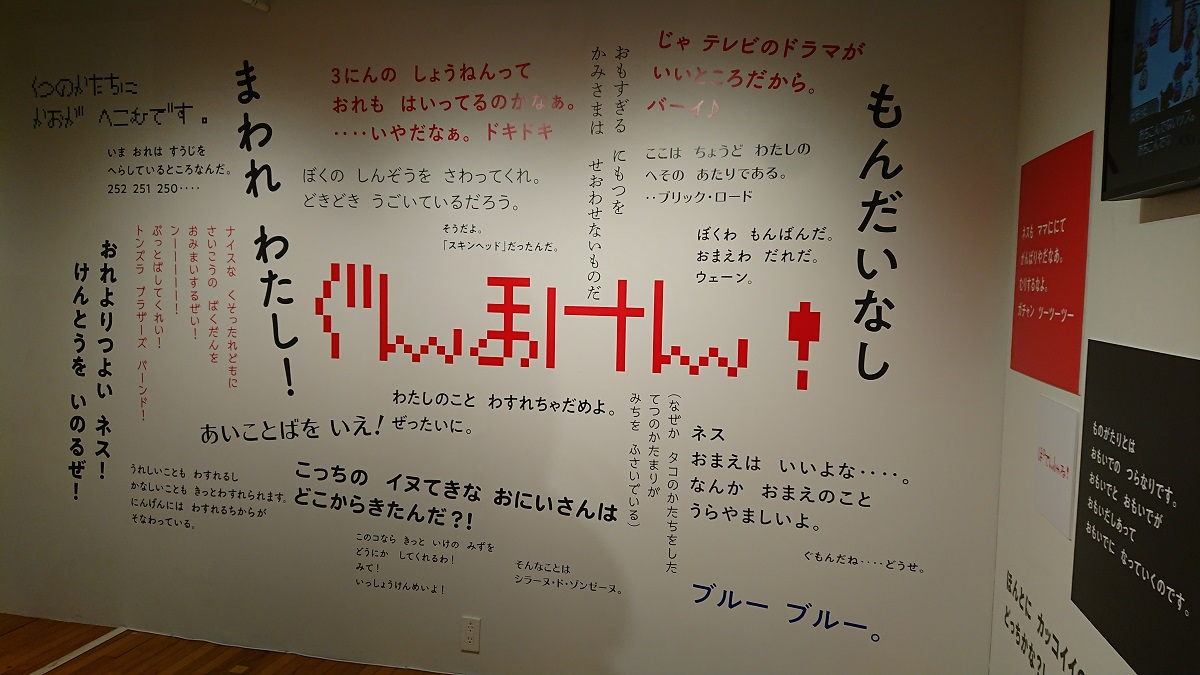 くつのかたちに
かおが へこむです。
いま おれは すうじを
へらしているところなんだ。
252 251 250‥‥
まわれ わたし！
3にんの しょうねんって
おれも はいってるのかなぁ。
‥‥いやだなぁ。ドキドキ
ぼくの しんぞうを さわってくれ。
どきどき うごいているだろう。
そうだよ。
「スキンヘッド」だったんだ。
おもすぎる にもつを
かみさまは せおわせないものだ
じゃ テレビのドラマが
いいところだから。
バーイ♪
ここは ちょうど わたしの
へその あたりである。
‥ブリック・ロード
ぼくわ もんばんだ。
おまえわ だれだ。
ウェーン。
もんだいなし
ナイスな くそったれどもに
さいこうの ばくだんを
おみまいするぜい！
ンーーーーーー！
ぶっとばしてくれい！
トンズラ ブラザーズ バーンド！
おれよりつよい ネス！
けんとうを いのるぜ！
ぐんまけん！
わたしのこと わすれちゃだめよ。
ぜったいに。
あいことばを いえ！
うれしいことも わすれるし
かなしいことも きっとわすれられます。
にんげんには わすれるちからが
そなわっている。
こっちの イヌてきな おにいさんは
どこからきたんだ？！
（なぜか タコのかたちをした
てつのかたまりが
みちを ふさいでいる）
ネス
おまえは いいよな‥‥。
なんか おまえのこと
うらやましいよ。
このコなら きっと いけの みずを
どうにか してくれるわ！
みて！
いっしょうけんめいよ！
そんなことは
シラーヌ・ド・ゾンゼーヌ。
ぐもんだね‥‥どうせ。
ブルー ブルー。
ネスも ママににて
がんばりやだなあ。
むりするなよ。
ガチャン ツーツーツー
ものがたりとは
おもいでの つらなりです。
おもいでと おもいでが
おもいだしあって
おもいでに なっていくのです。
ほんとに カッコイイ
どっちかな？！